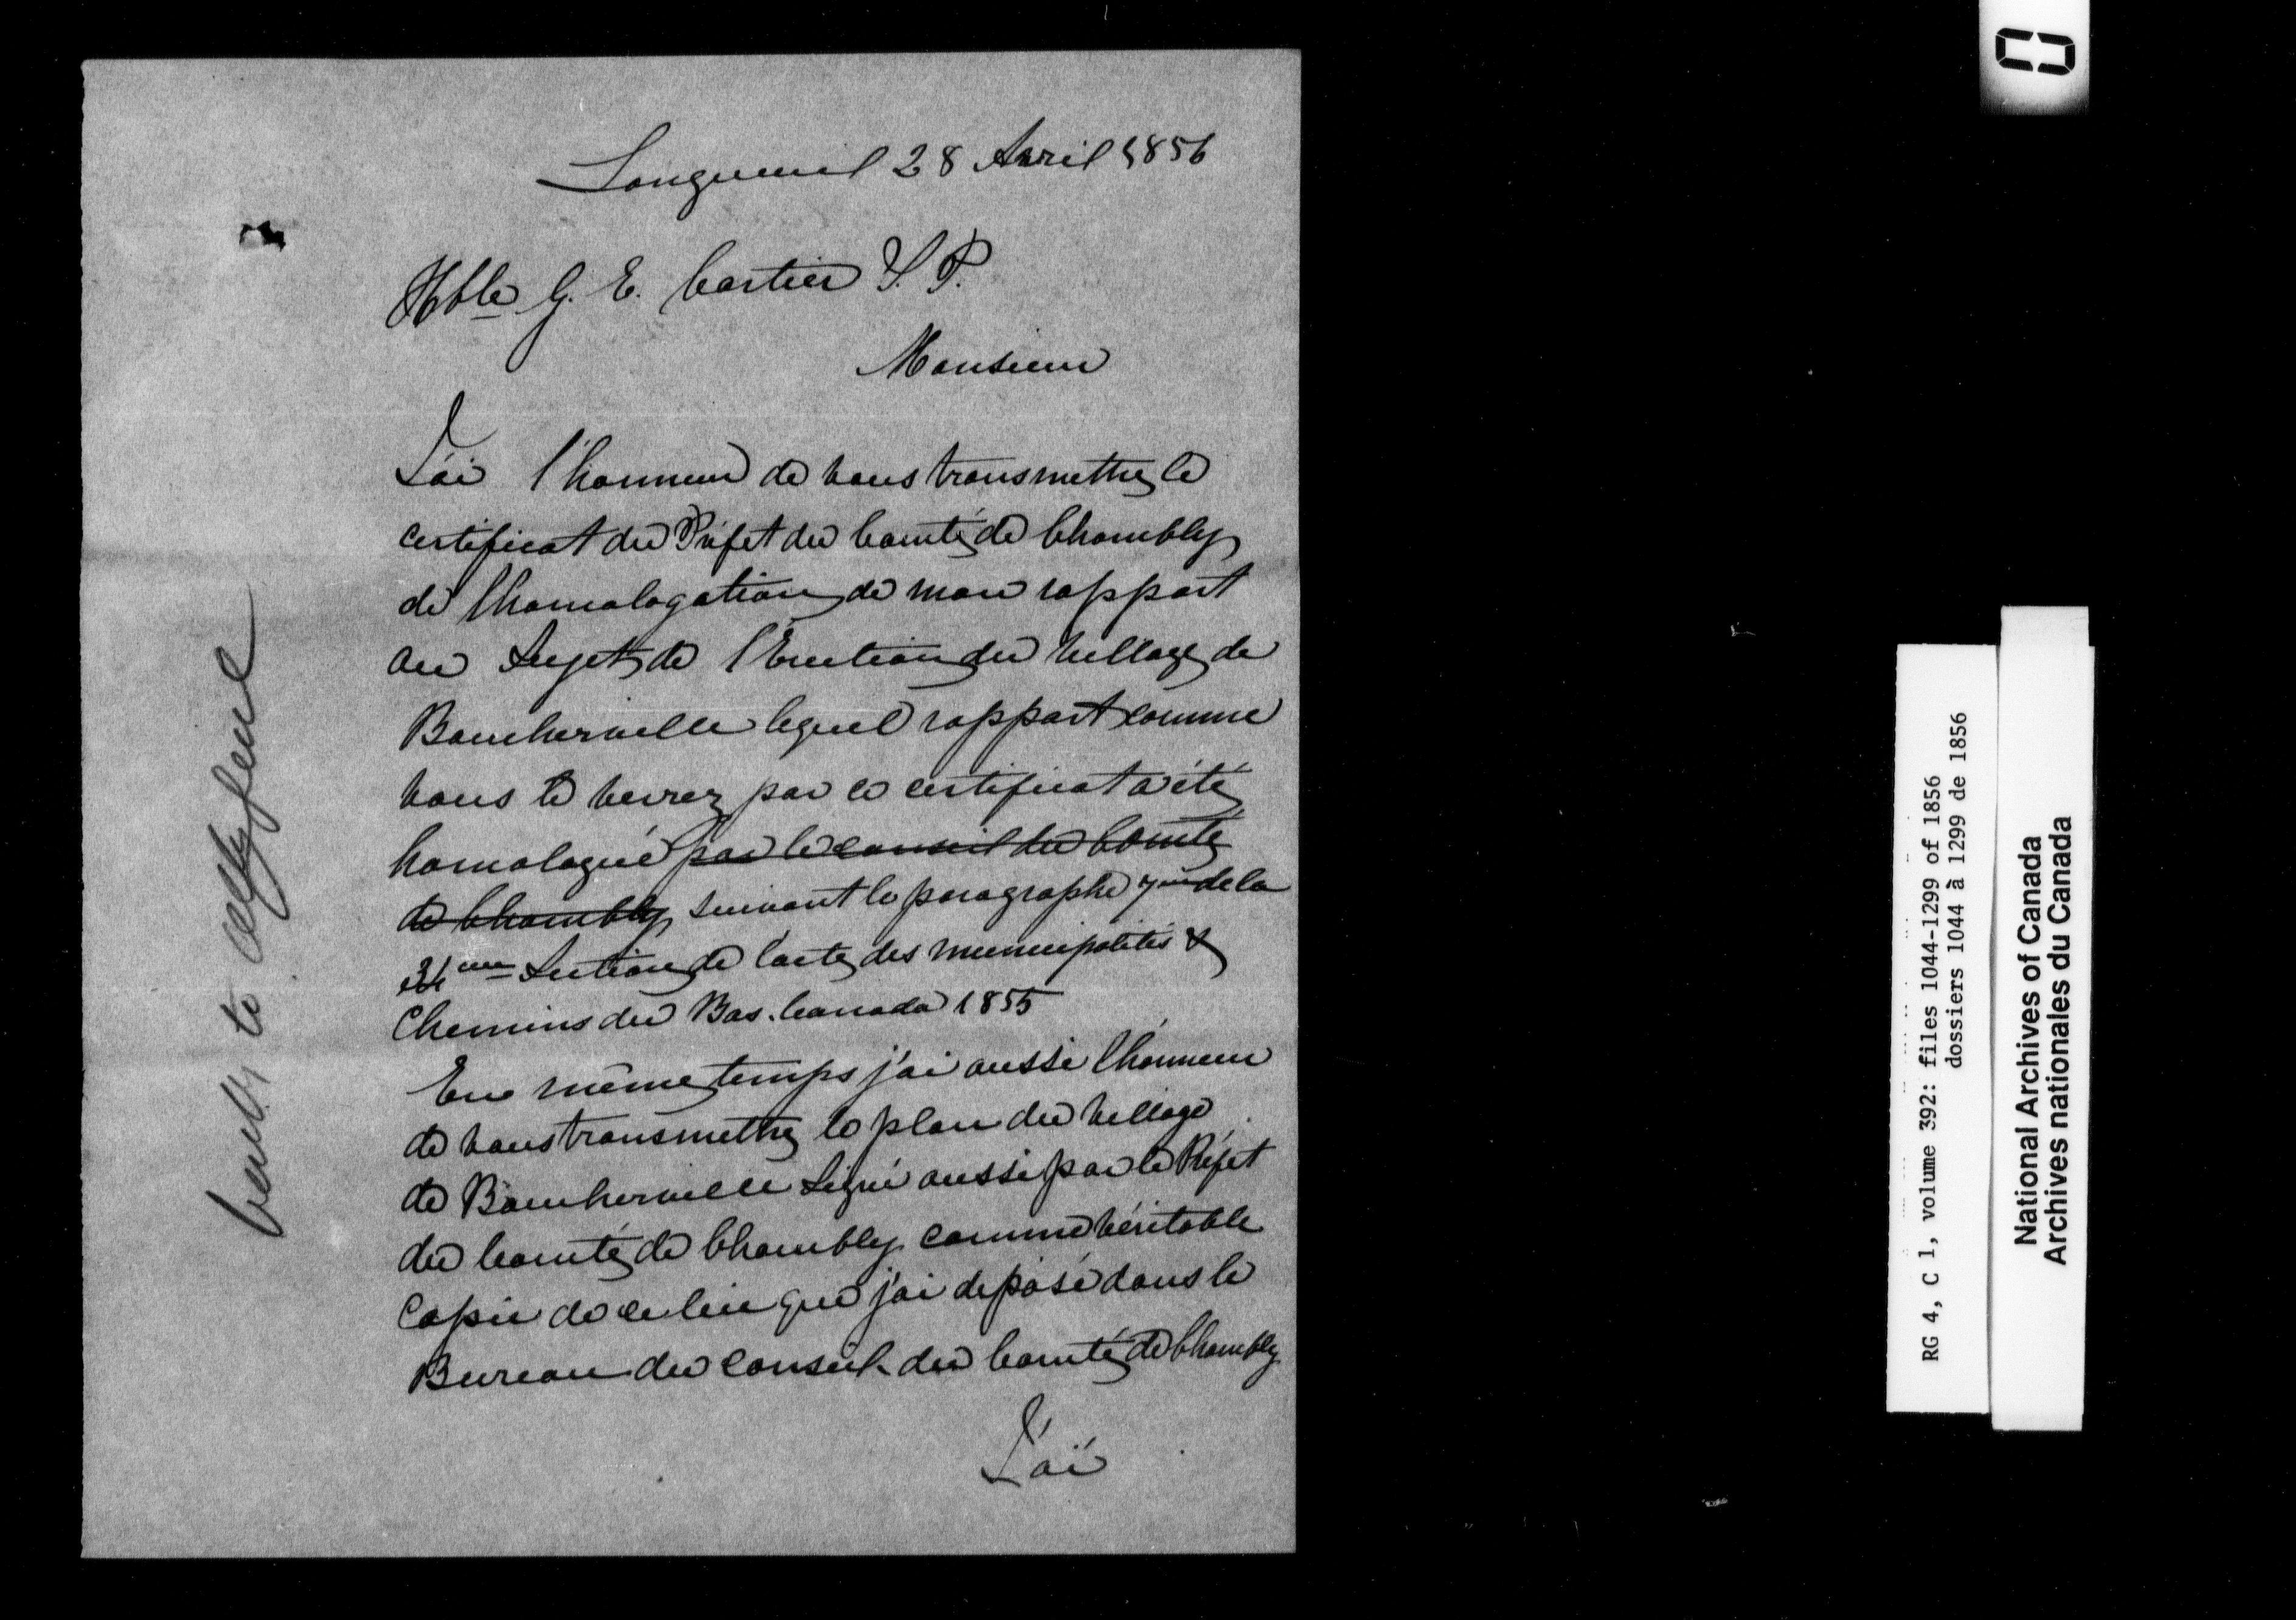 Longueuil 28 Avril 1856
Hble G. E. Cartier S. P.
Monsieur
J'ai l'honneur de vous transmettre le
certificat du Préfet du Comté de Chambly
de l'homologation de mon rapport
au Sujet de l'Erection du Village de
Boucherville lequel rapport comme
vous le verrez par ce certificat a été
homologué par le conseil du Comté
de Chambly suivant le paragraphe 7me de la
34eme Section de l'acte des municipalités &
Chemins du Bas-Canada 1855
En même temps j'ai aussi l'honneur
de vous transmettre le plan du Village
de Boucherville Signé aussi par le Préfet
du Comté de Chambly comme véritable
Copie de celui que j'ai déposé dans le
Bureau du conseil du Comté de Chambly
J'ai
to
RG 4, C 1, volume 392: files 1044-1299 of 1856
dossiers 1044 à 1299 de 1856
National Archives of Canada
Archives nationales du Canada